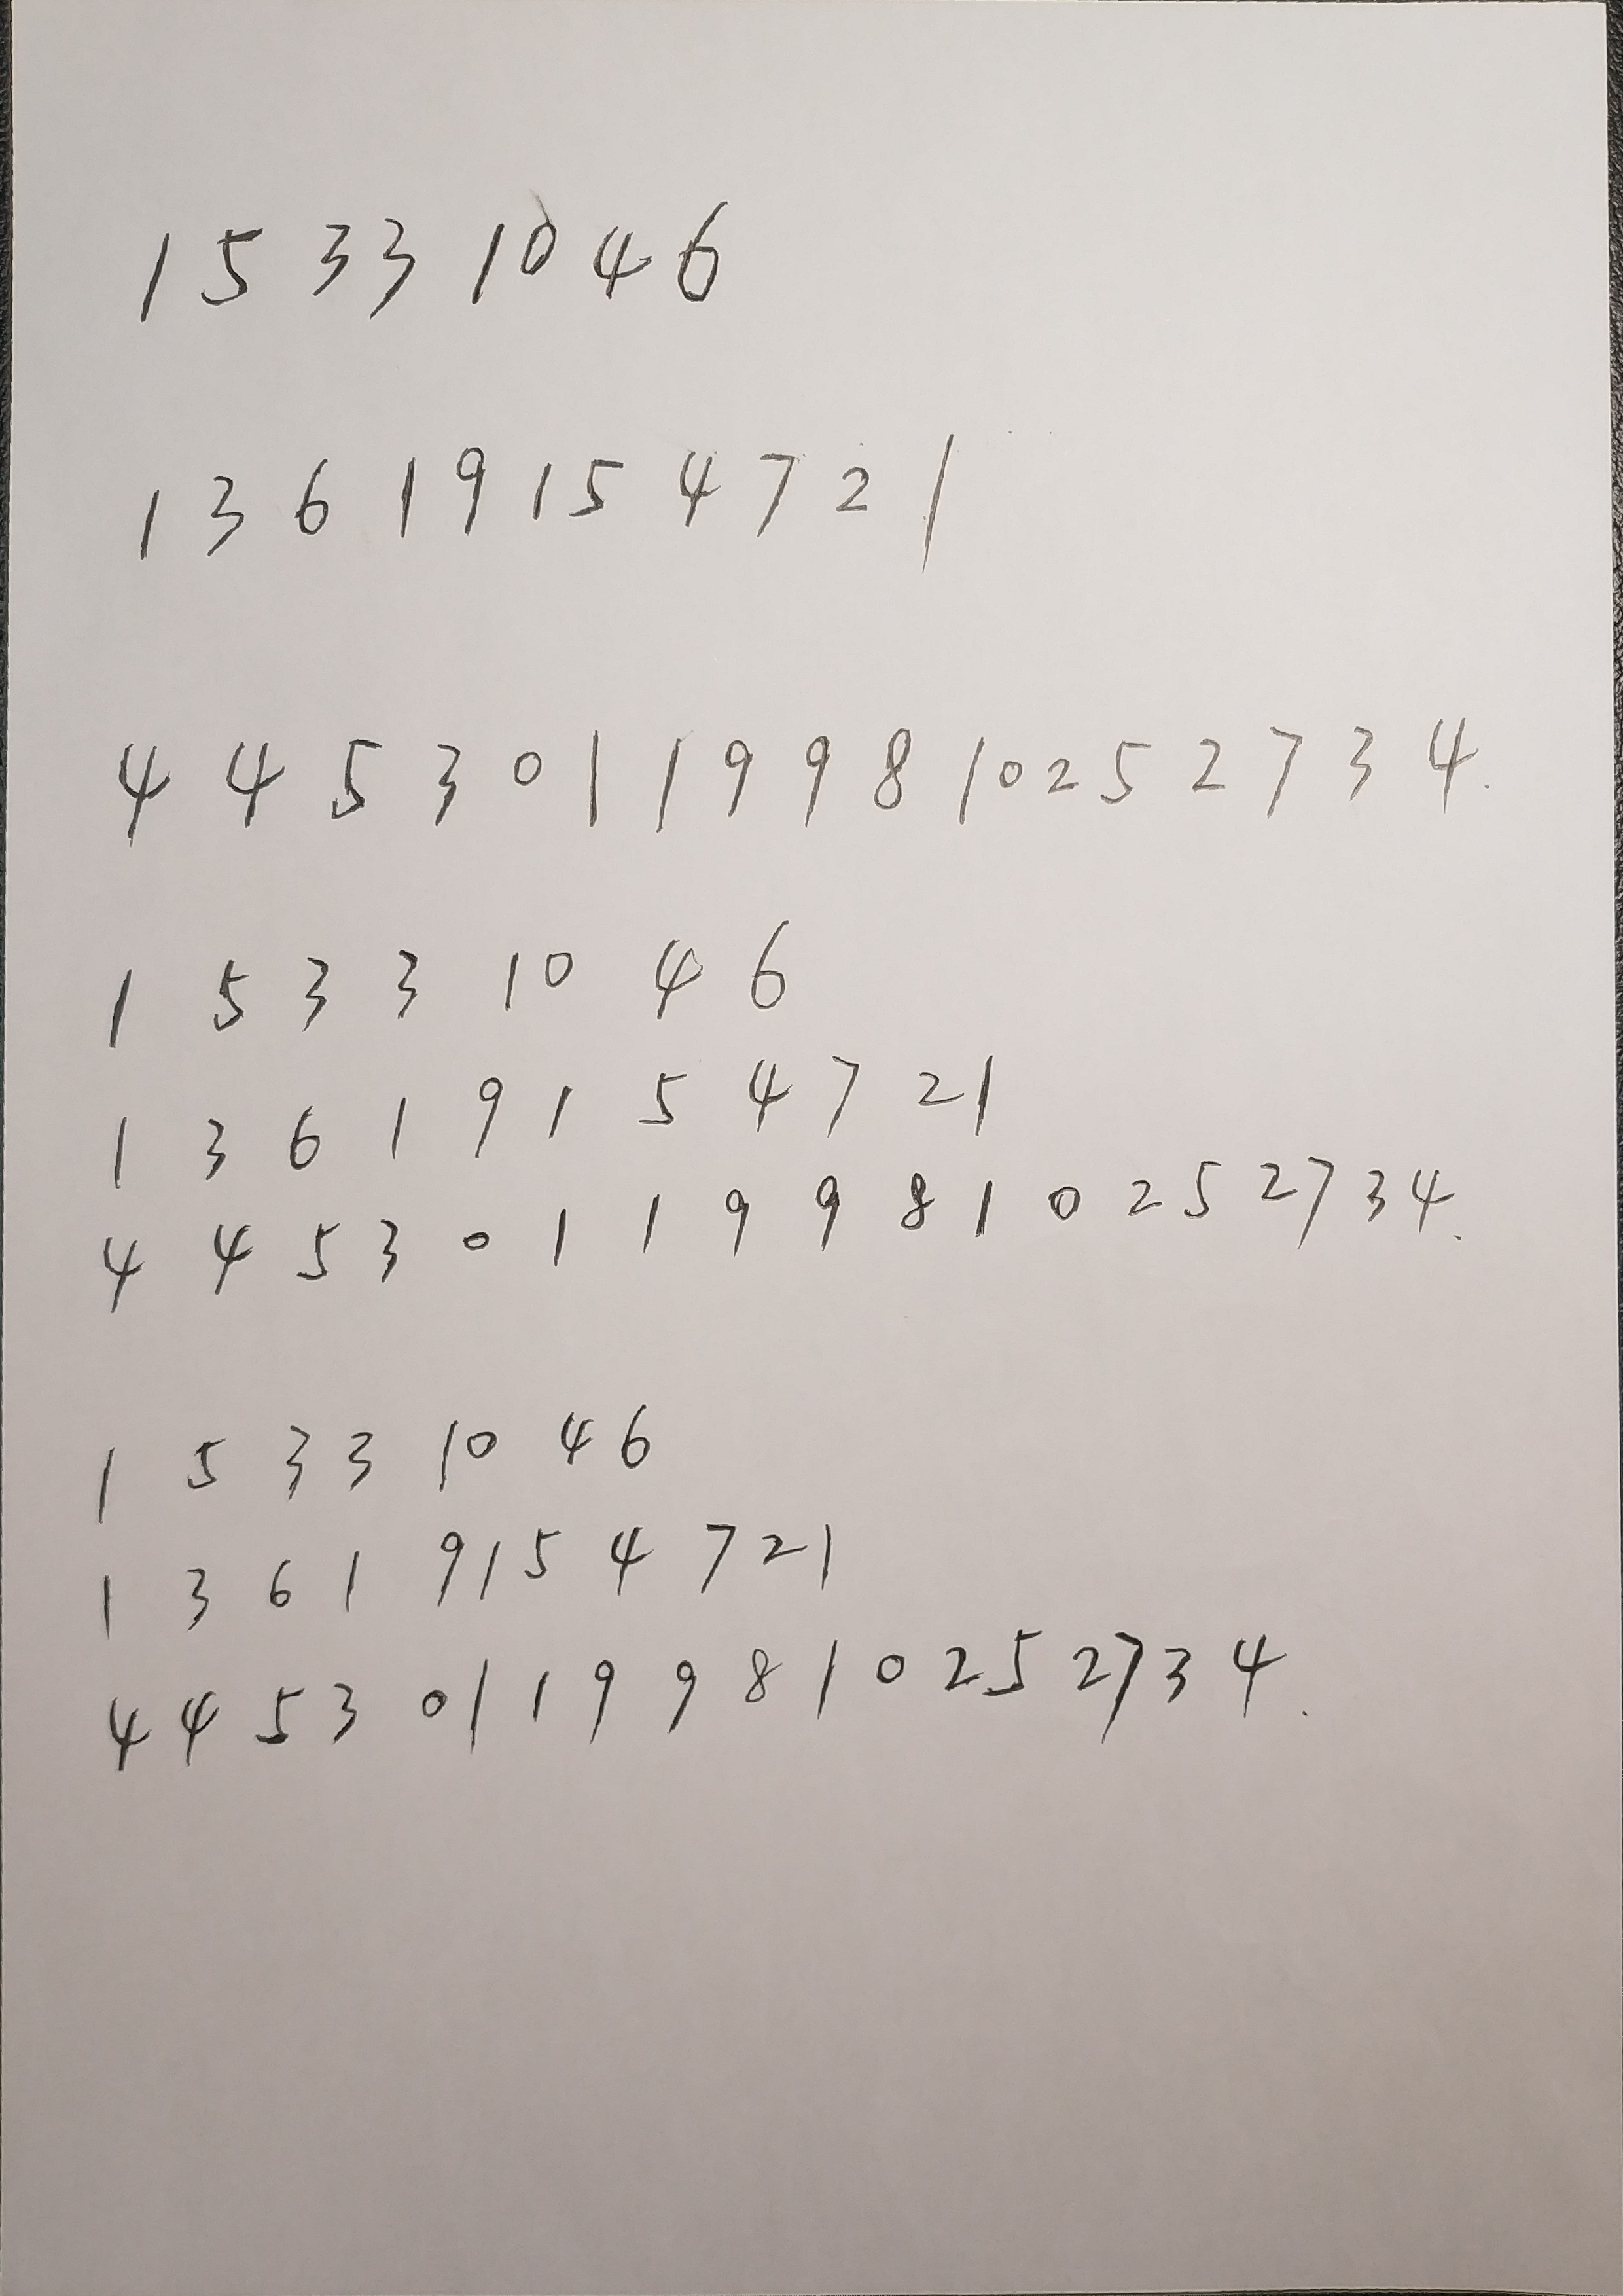 1 5 3 3 1 0 4 6
1 3 6 1 9 1 5 4 7 2 1
4 4 5 3 0 1 1 9 9 8 1 0 2 5 2 7 3 4.
1 5 3 3 1 0 4 6
1 3 6 1 9 1 5 4 7 2 1
4 4 5 3 0 1 1 9 9 8 1 0 2 5 2 7 3 4.
1 5 3 3 1 0 4 6
1 3 6 1 9 1 5 4 7 2 1
4 4 5 3 0 1 1 9 9 8 1 0 2 5 2 7 3 4.